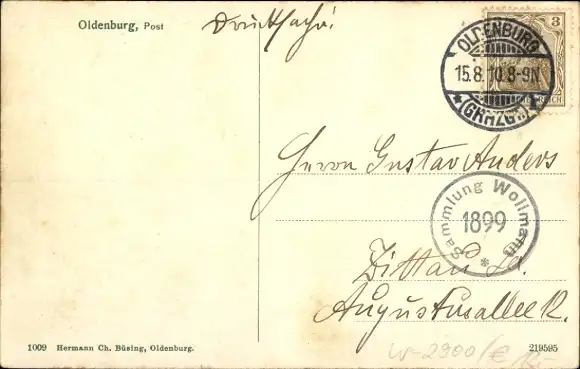 Oldenburg, Post
Drucksache!
3
OLDENBURG
15.8.10.8-9N
*(GRHZGT.)*
REICH
Herrn Gustav Anders
Sammlung Wollmann
1899
*
Zittau Sa.
Augustusallee
1009 Hermann Ch. Büsing, Oldenburg.
219595
W-2900/€